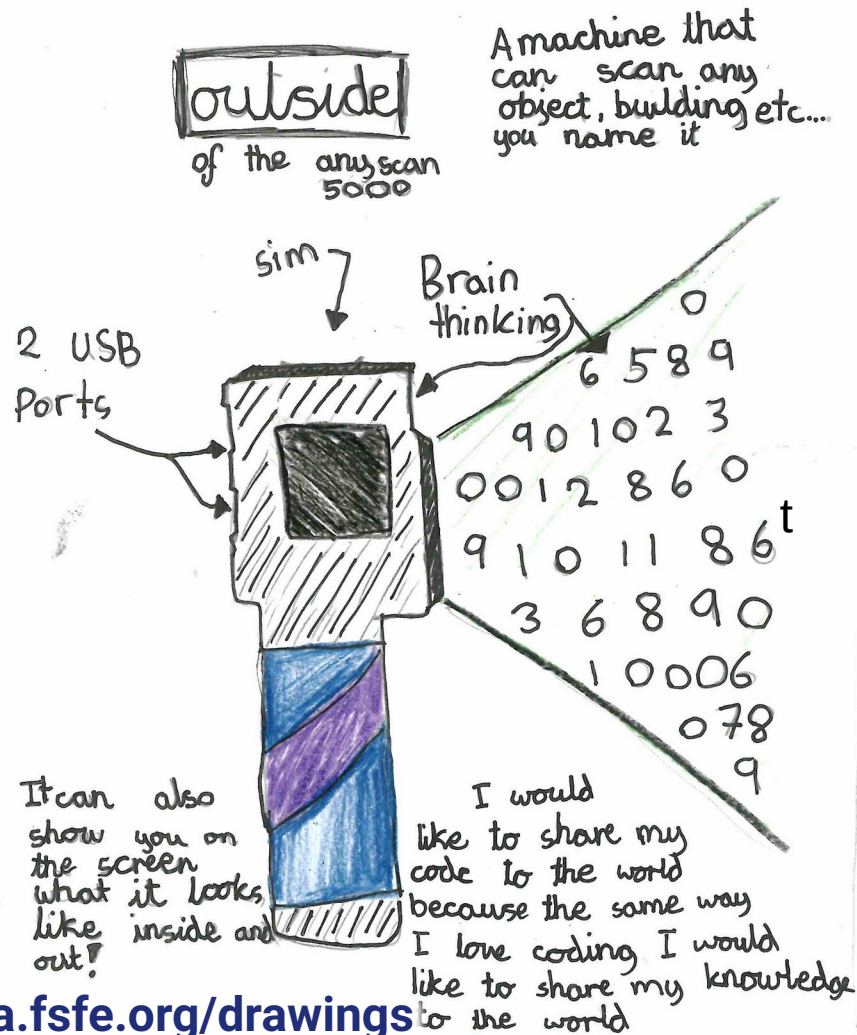 outside
of the anyscan
5000
A machine that
can scan any
object, building etc...
you name it
sim
Brain
thinking
2 USB
Ports
0
6 5 8 9
9 0 1 0 2 3
0 0 1 2 8 6 0
9 1 0 11 8 6
t
3 6 8 9 0
1 0 0 0 6
0 7 8
9
It can also
show you on
the screen
what it looks
like inside and
out!
I would
like to share my
code to the world
because the same way
I love coding I would
like to share my knowledge
to the world
a.fsfe.org/drawings